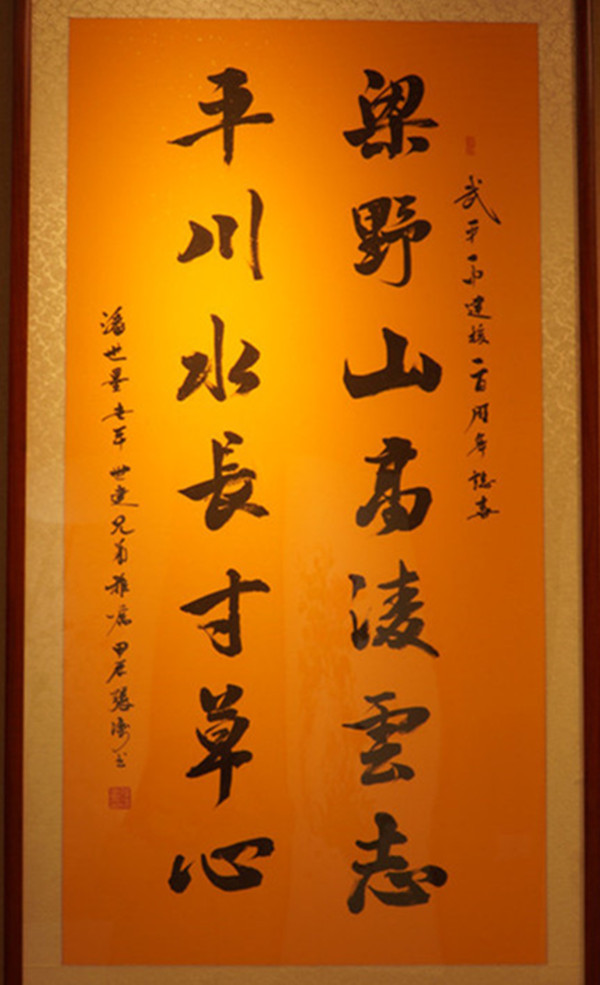 武平一中建校一百周年誌喜
梁野山高淩雲志
平川水長寸草心
潘世墨 世建兄弟雅嘱甲午 書